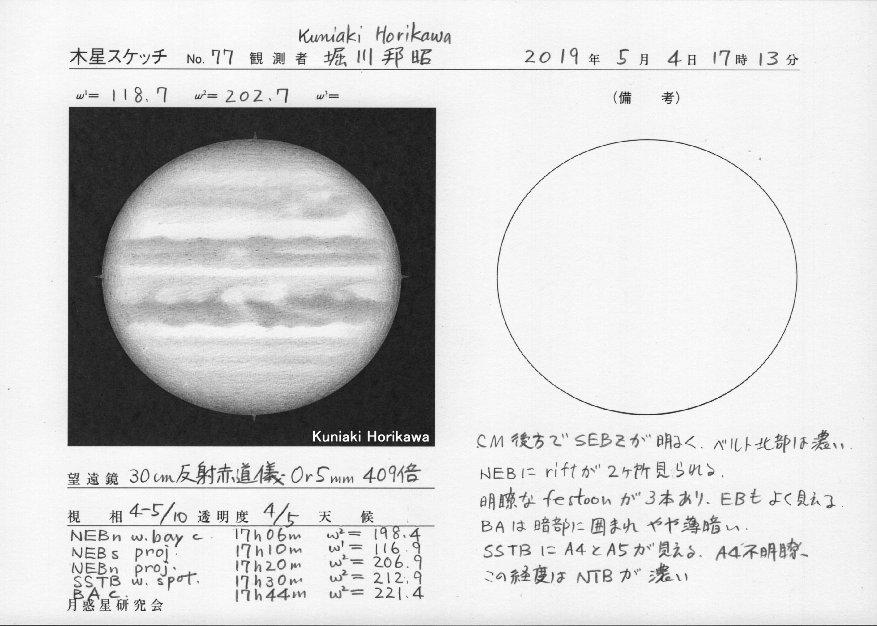 Kuniaki Horikawa
木星スケッチ No. 77 観測者 堀川邦昭 2019年 5月 4日 17時 13分
ω¹= 118.7 ω²= 202.7 ω³=
(備 考)
Kuniaki Horikawa
望遠鏡 30cm反射赤道儀 Or5mm 409倍
視 相 4-5/10 透明度 4/5 天 候
NEBn w.bay c. 17h06m ω²= 198.4
NEBs proj. 17h10m ω¹= 116.9
NEBn proj. 17h20m ω²= 206.9
SSTB w. spot. 17h30m ω²= 212.9
BA c. 17h44m ω²= 221.4
月惑星研究会
CM後方でSEBZが明るく、ベルト北部は濃い.
NEBにriftが2ヶ所見られる.
明瞭なfestoonが3本あり、EBもよく見える.
BAは暗部に囲まれやや薄暗い.
SSTBにA4とA5が見える. A4不明瞭.
この経度はNTBが濃い